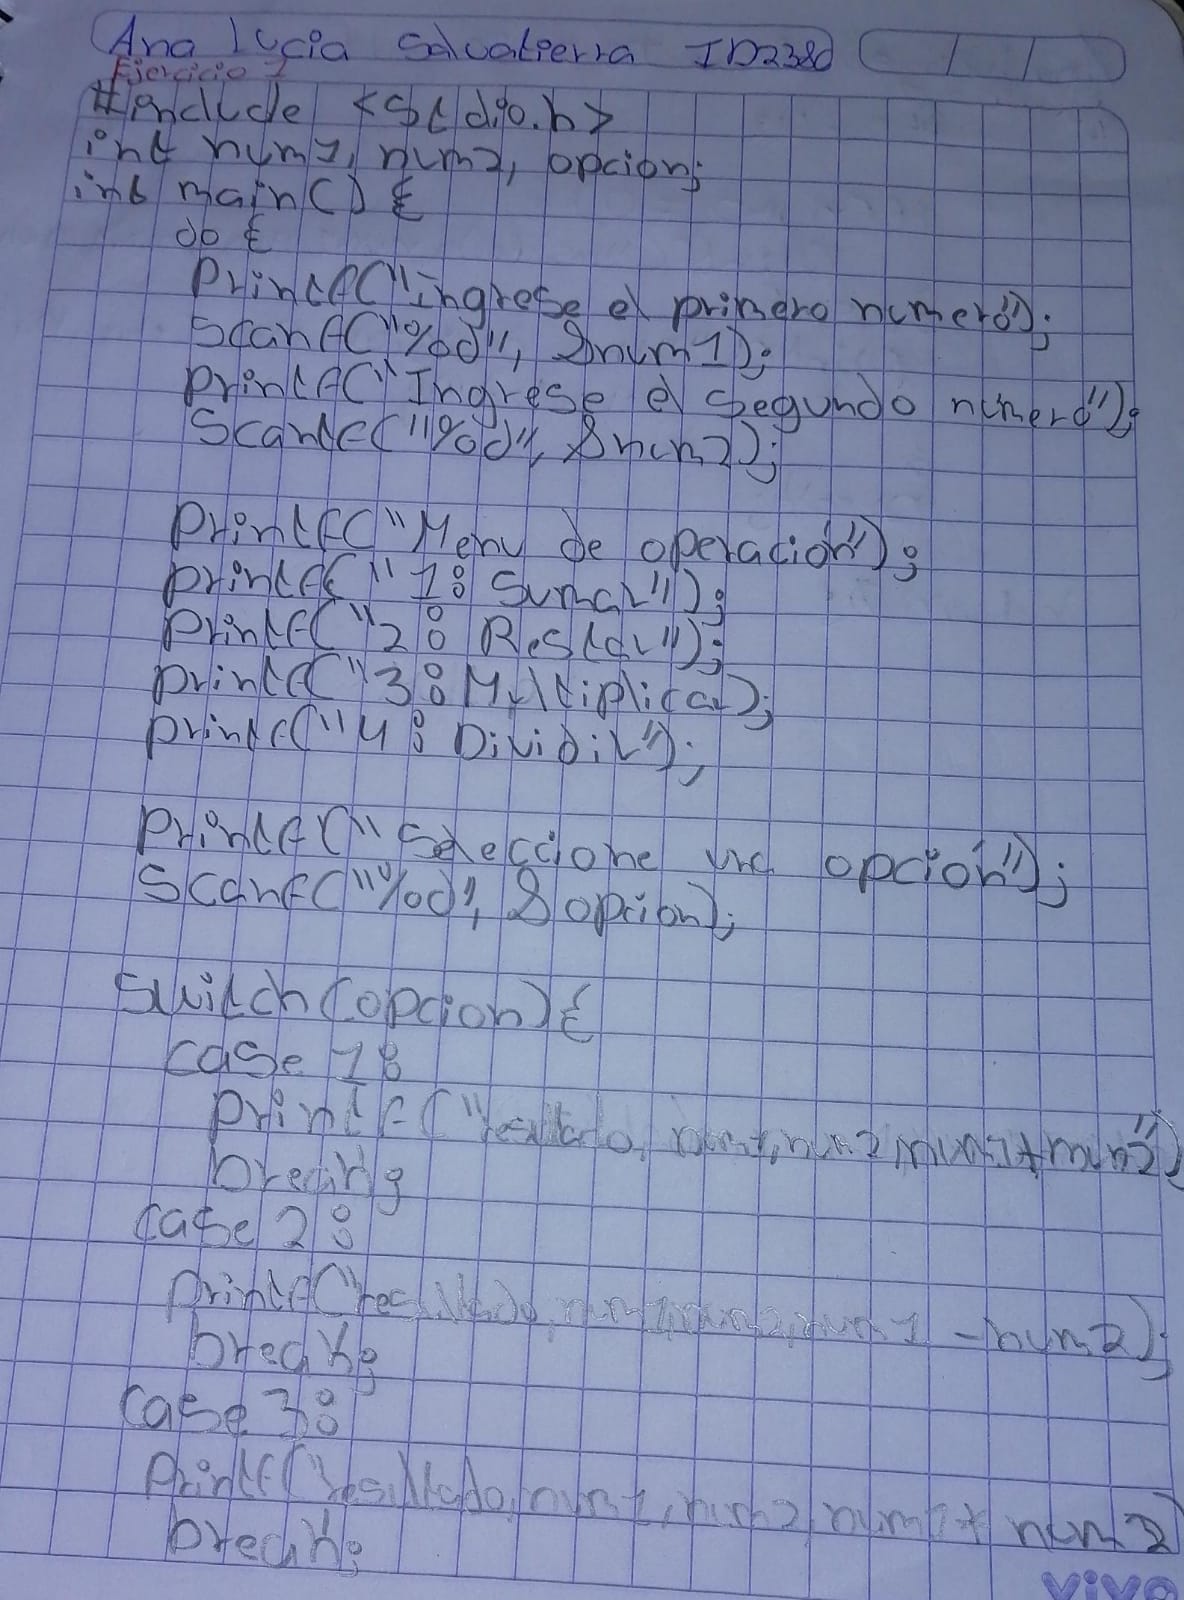 Ana Lucia Salvatierra ID2380
Ejercicio 1
#include <stdio.h>
int num1, num2, opcion;
int main() {
do {
printf("ingrese el primero numero");
scanf("%d", &num1);
printf("Ingrese el segundo numero");
Scanf("%d", &num2);
printf("Menu de operación");
printf("1: Sumar");
printf("2: Restar");
printf("3: Multiplicar);
printf("4: Dividir");
printf("Seleccione una opción");
Scanf("%d", &opcion);
switch(opcion){
case 1:
printf("resultado, num1, num2, num1+num2")
break;
case 2:
printf("resultado, num1, num2, num1 - num2);
break;
case 3:
printf("resultado, num1, num2, num1* num2)
break;
vivo